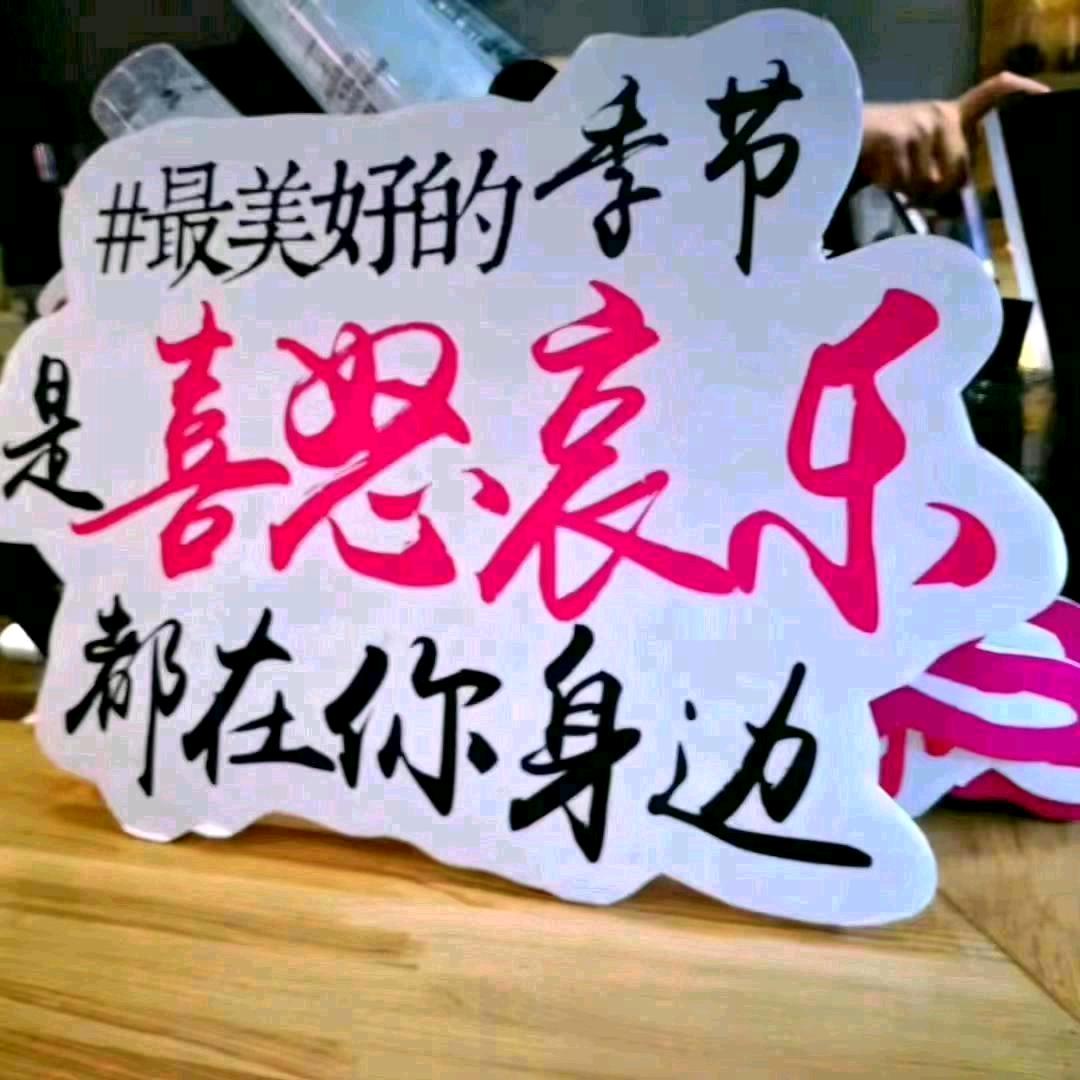 #最美好的季节
是喜怒哀乐
都在你身边